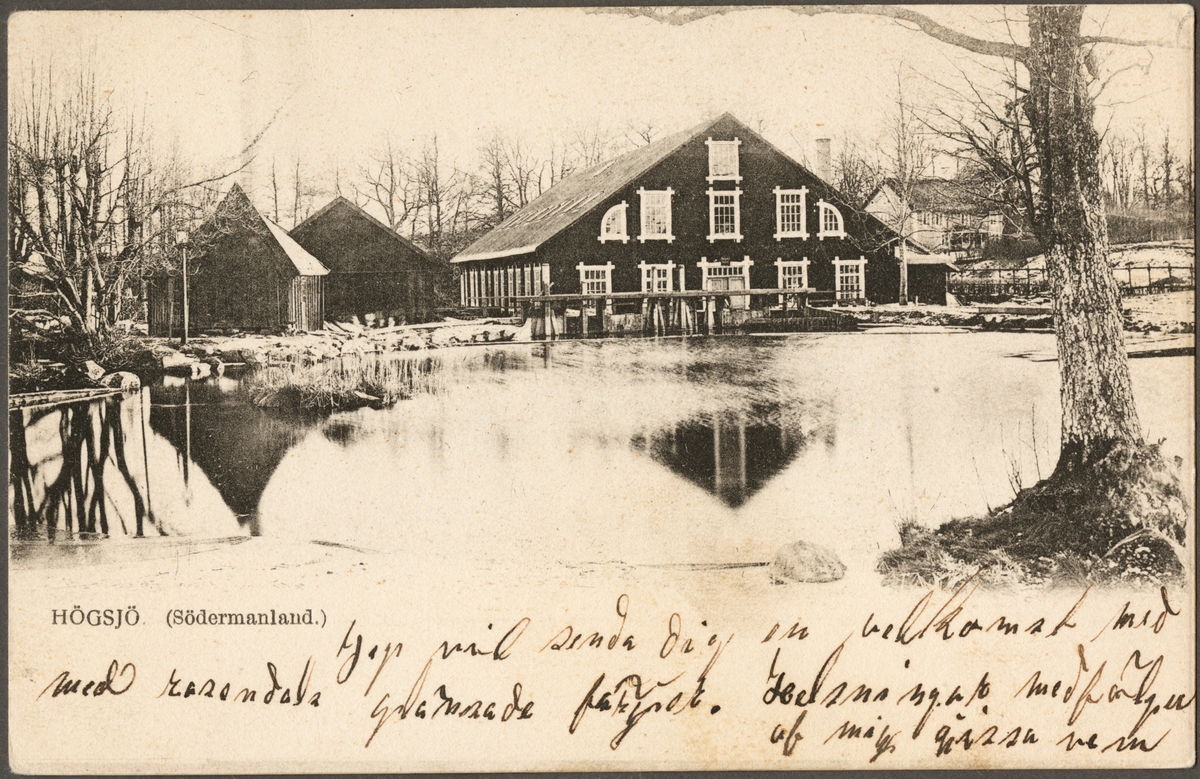 HÖGSJÖ. (Södermanland.)
Jep vil senda dig en velkomst med
med rosendals glänsade färger. Helsningar medföljer
af mig gissa vem